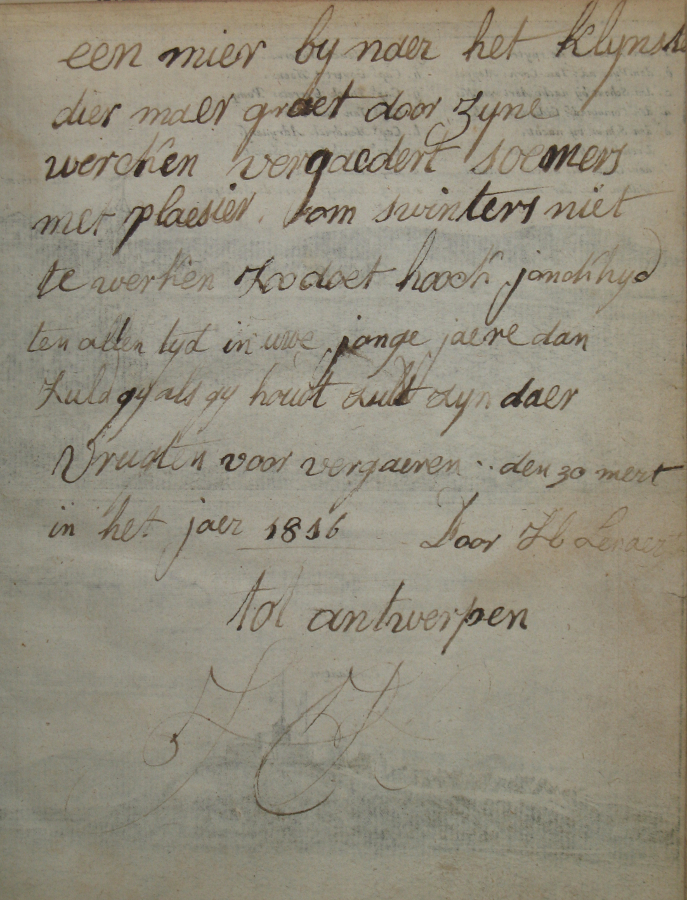 een mier by naer het klynste
dier maer groet door zyne
wercken vergaedert soemers
met plaesier om swinters niet
te werken zoo doet hoock
ten allen tyd in uwe jonge jaere dan
zuld gy als gy houdt zult zyn daer
vrugten voor vergaeren .. den 30 mert
in het jaer 1816 Door
tot antwerpen